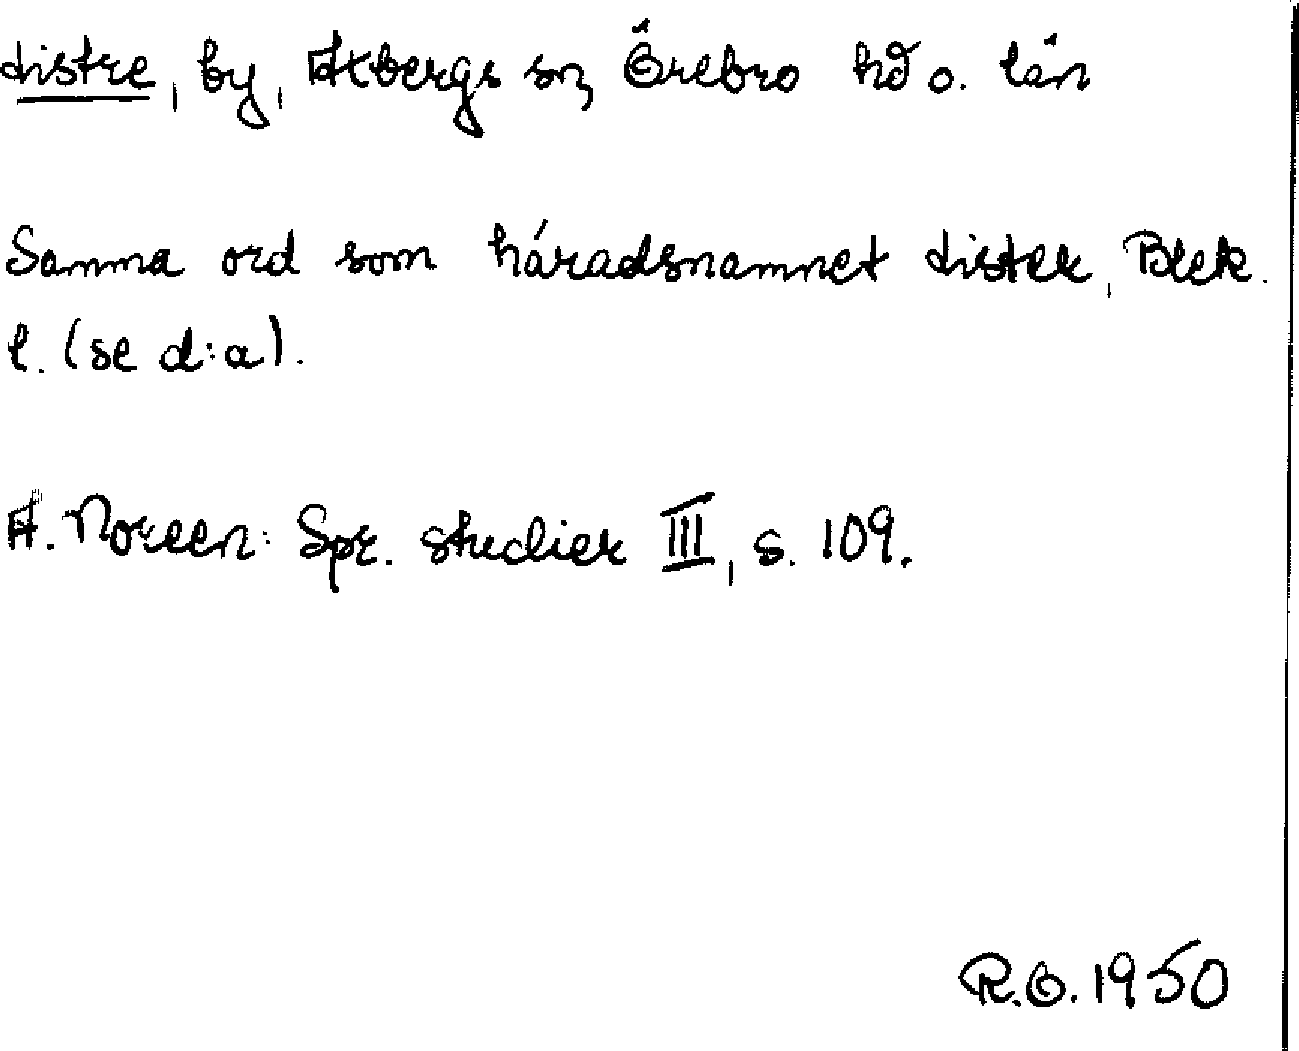 Listre, by, Axbergs sn, Örebro hd o. län
Samma ord som häradsnamnet Lister, Blek.
l. (se d:a).
A. Noreen: Spr. studier III, s. 109.
R.Ö. 1950